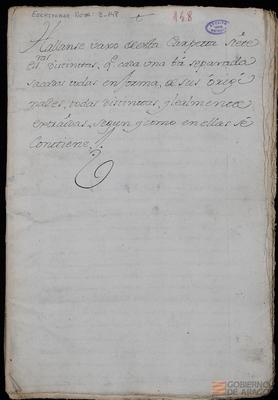 148
Hallanse vaxo desta Carpetta siete
distinttas, q.e cada una bá separada
sacadas todas en forma, de sus origi
nales, todas distinttas, y lealmente
extraidas, segun y como en ellas se
Conttiene
GOBIERNO
DE ARAGON